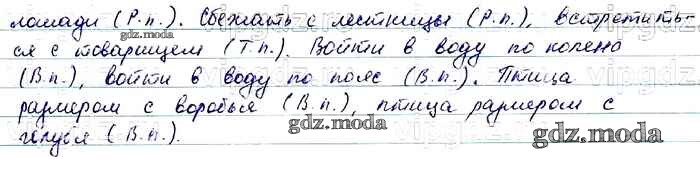 лошади (Р.п.). Сбежать с лестницы (Р.п.), встретить-
ся с товарищем (Т.п.). Войти в воду по колено
(В.п.), войти в воду по пояс (В.п.). Птица
размером с воробья (В.п.), птица размером с
gdz.moda
голубя (В.п.).
gdz.moda